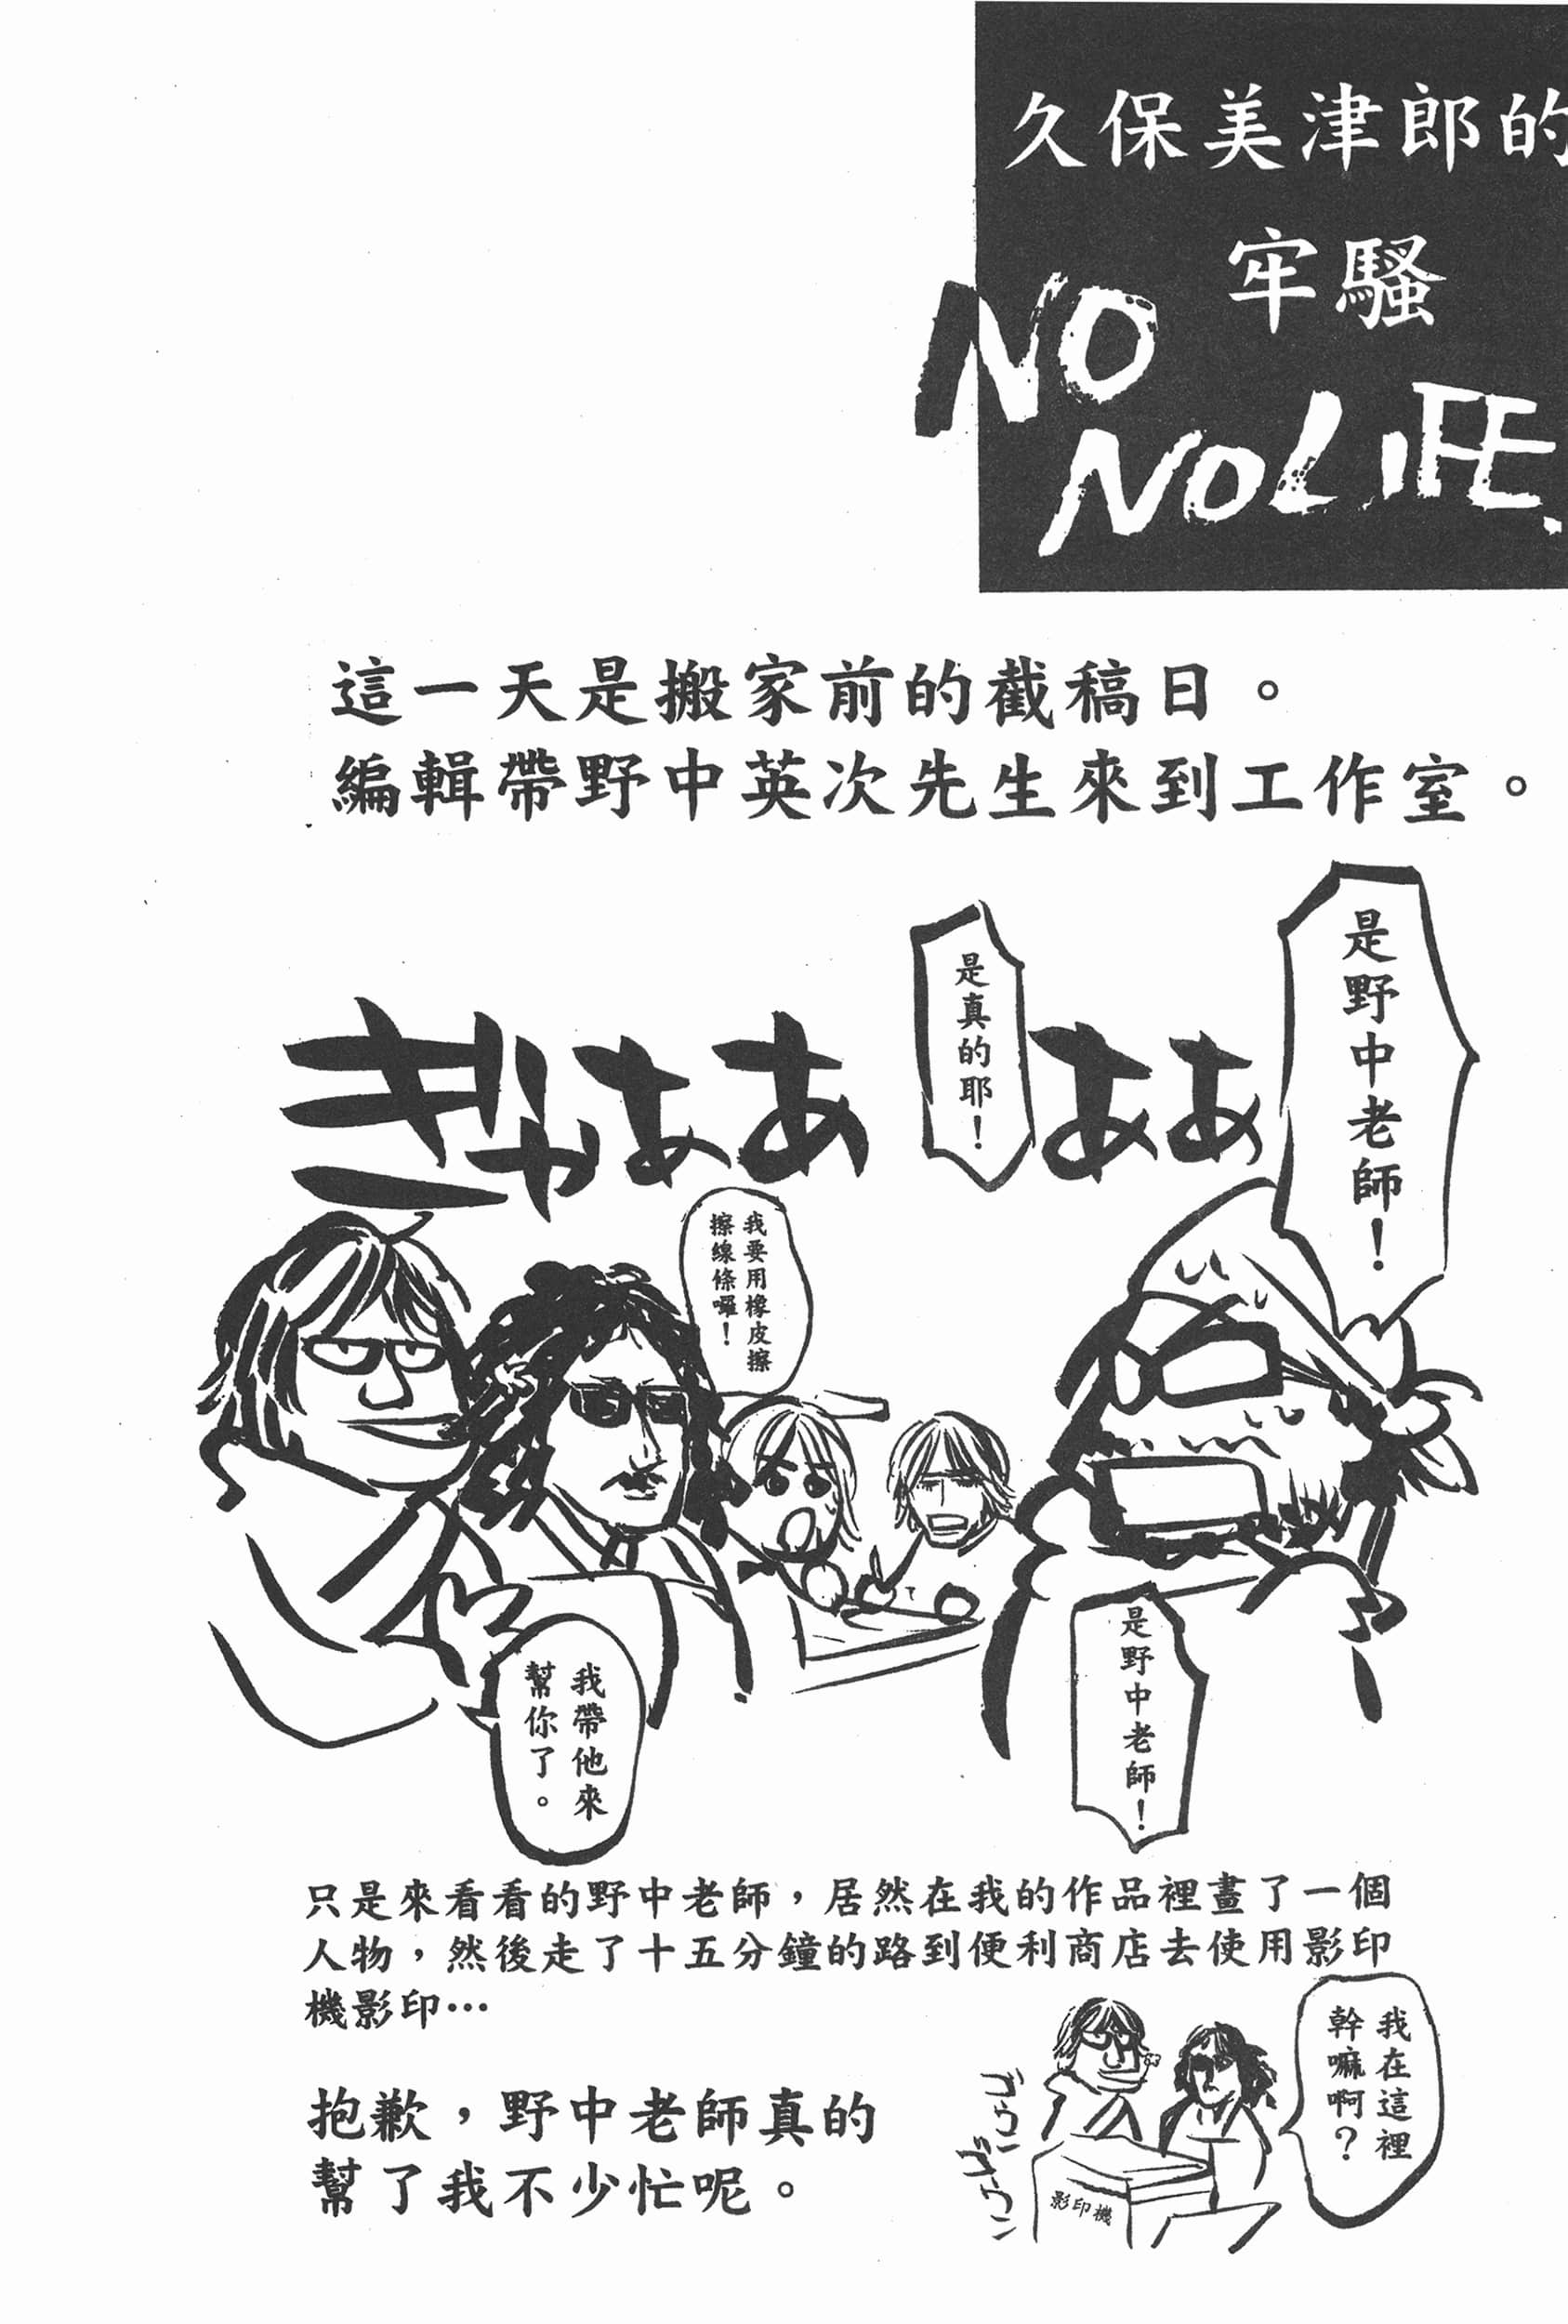 久保美津郎的
牢騷
NO
NO LIFE.
這一天是搬家前的截稿日。
編輯帶野中英次先生來到工作室。
是野中老師！
是真的耶！
ぎゃああ
ああ
我要用橡皮擦
擦線條囉！
是野中老師！
我帶他來
幫你了。
只是來看看的野中老師，居然在我的作品裡畫了一個
人物，然後走了十五分鐘的路到便利商店去使用影印
機影印…
我在這裡
幹嘛啊？
ゴウン
ゴウン
影印機
抱歉，野中老師真的
幫了我不少忙呢。